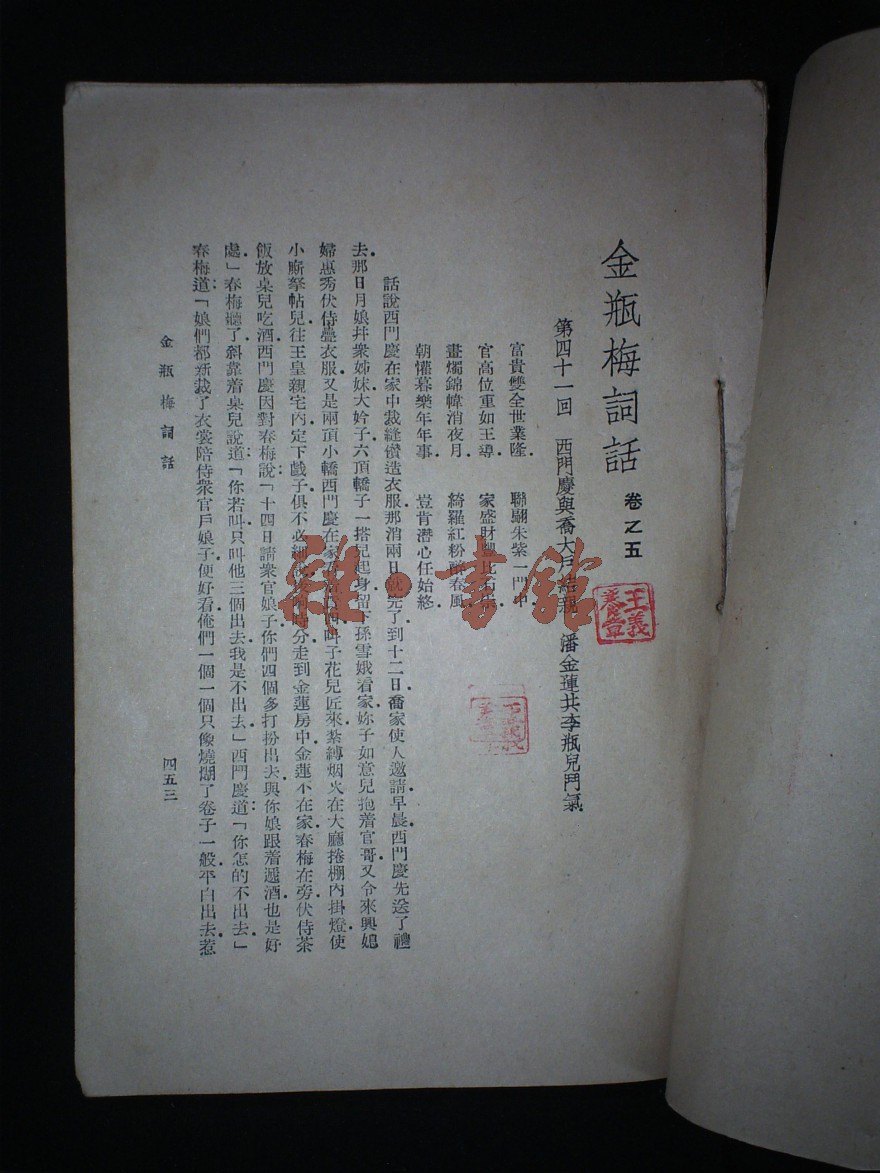 金瓶梅詞話 卷之五
第四十一回 西門慶與喬大戶結親 潘金蓮共李瓶兒鬥氣
富貴雙全世業隆。 聯翩朱紫一門中
官高位重如王導。 家盛財豐比石崇
畫燭錦幃消夜月。 綺羅紅粉醉春風
朝懽暮樂年年事。 豈肯潛心任始終。
話說西門慶在家中裁縫儧造衣服那消兩日就完了到十二日喬家使人邀請早晨西門慶先送了禮
去那日月娘幷衆姊妹大妗子六頂轎子一搭兒起身留下孫雪娥看家妳子如意兒抱着官哥又令來興媳
婦惠秀伏侍疊衣服又是兩頂小轎西門慶在家 叫 花兒匠來紮縛烟火在大廳捲棚內掛燈使
小廝拏帖兒往王皇親宅內定下戲子俱不必細說 時分走到金蓮房中金蓮不在家春梅在旁伏侍茶
飯放桌兒吃酒西門慶因對春梅說「十四日請衆官娘子你們四個多打扮出去與你娘跟着遞酒也是好
處」春梅聽了斜靠着桌兒說道「你若叫只叫他三個出去我是不出去」西門慶道「你怎的不出去」
春梅道「娘們都新裁了衣裳陪侍衆官戶娘子便好看俺們一個一個只像燒煳了卷子一般平白出去惹
金瓶梅詞話 四五三
雜·書館